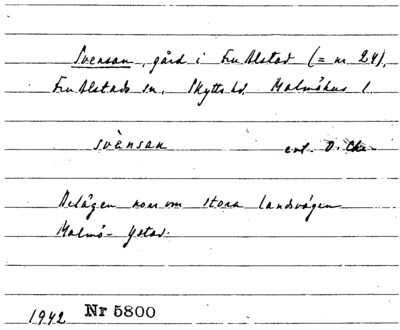 Svensan, gård i Fru Alstad (= nr 24),
Fru Alstads sn, Skytts hd. Malmöhus l.
svènsan enl. O. Chr.
Belägen norr om stora landsvägen
Malmö - Ystad.
1942 Nr 5800